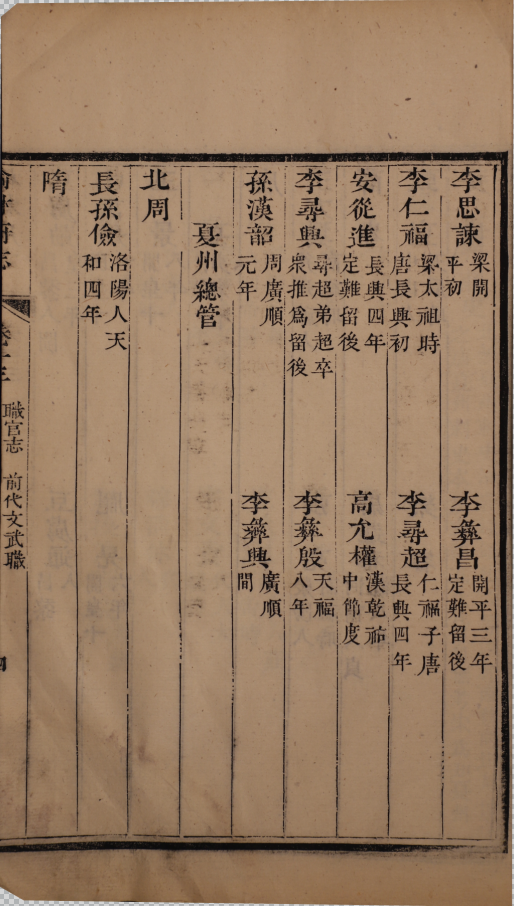 李思諫 梁開平初 李彝昌 開平三年定難留後
李仁福 梁太祖時唐長興初 李尋超 仁福子唐長興四年
安從進 長興四年定難留後 高允權 漢乾祐中節度
李尋興 尋超弟超卒衆推爲留後 李彝殷 天福八年
孫漢韶 周廣順元年 李彝興 廣順間
夏州總管
北周
長孫儉 洛陽人天和四年
隋
職官志 前代文武職